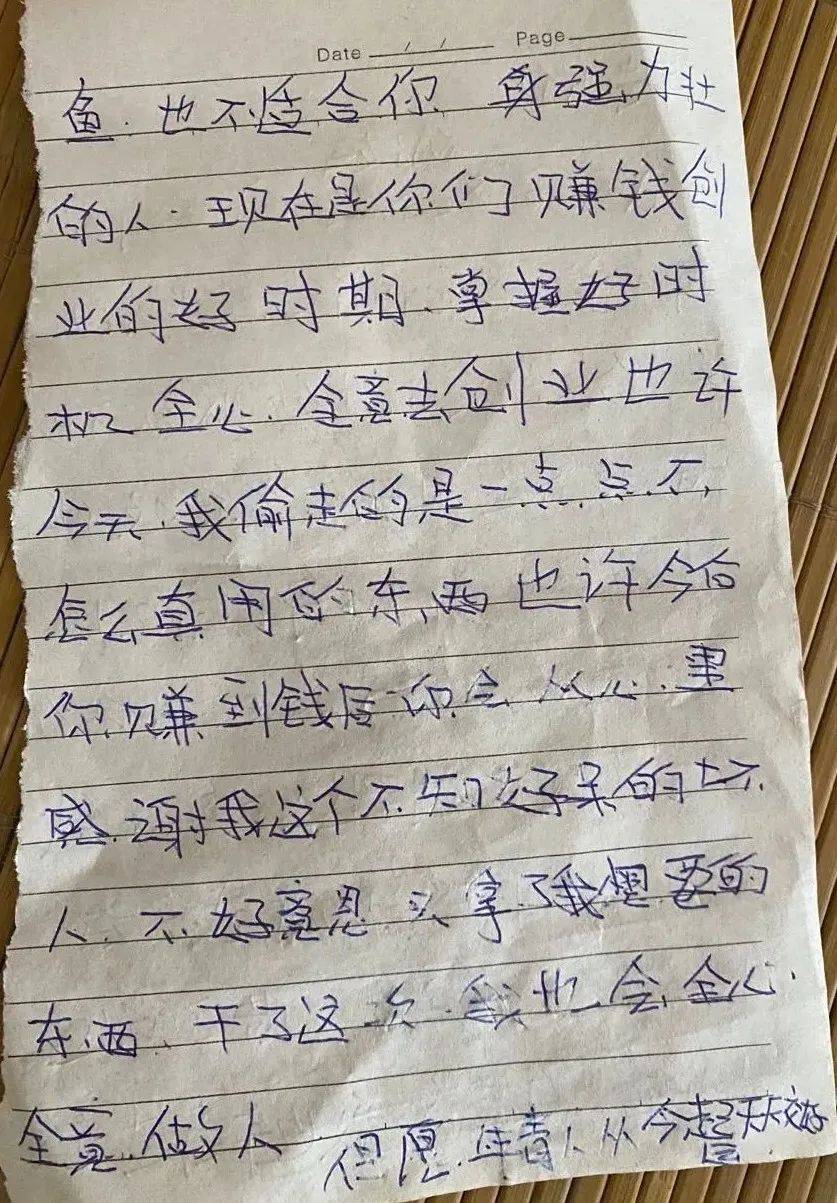 Date / / Page
鱼.也不适合你 身强.力壮
的人.现在是你们赚钱创
业的好时期.掌握好时
机 全心.全意去创业也许
今天.我偷走的是一点.点.不,
怎么真用的东.西也许今后
你.赚到钱后你会从心.里
感.谢我这个不.知好呆的坏.
人.不.好意思 拿了我想要的
东.西.干了这次.我也会.全心.
全意.做人 但愿.年青人从今起天天交好